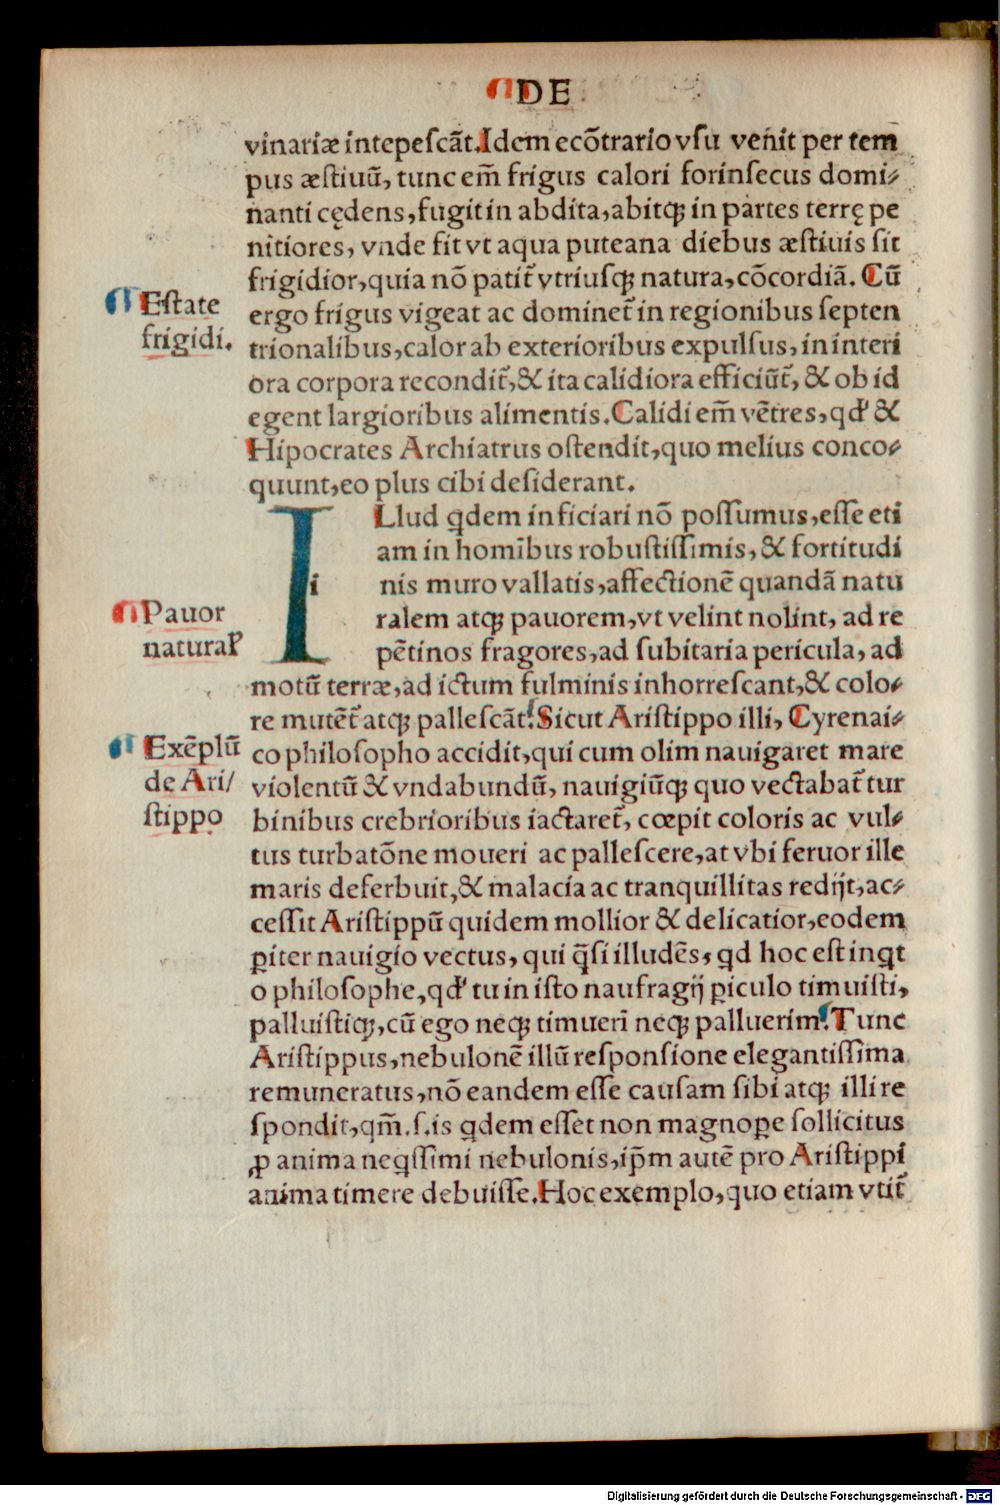 DE
vinariæ intepescãt. Idem ecõtrario vsu venit per tem
pus æstiuũ, tunc em̃ frigus calori forinsecus domi-
nanti cędens, fugit in abdita, abitqꝫ in partes terrę pe
nitiores, vnde fit vt aqua puteana diebus æstiuis sit
frigidior, quia nõ patit̃ vtriusqꝫ natura, cõcordiã. Cũ
ergo frigus vigeat ac dominet̃ in regionibus septen
trionalibus, calor ab exterioribus expulsus, in interi
ora corpora recondit̃, & ita calidiora efficiũt̃, & ob id
egent largioribus alimentis. Calidi em̃ vẽtres, qđ &
Hipocrates Archiatrus ostendit, quo melius conco-
quunt, eo plus cibi desiderant.
¶Estate
frigidi.
I i
Llud qdem inficiari nõ possumus, esse eti
am in homĩbus robustissimis, & fortitudi
nis muro vallatis, affectionẽ quandã natu
ralem atqꝫ pauorem, vt velint nolint, ad re
pẽtinos fragores, ad subitaria pericula, ad
motũ terræ, ad ictum fulminis inhorrescant, & colo-
re mutẽt̃ atqꝫ pallescãt. Sicut Aristippo illi, Cyrenai-
co philosopho accidit, qui cum olim nauigaret mare
violentũ & vndabundũ, nauigiũqꝫ quo vectabat̃ tur
binibus crebrioribus iactaret̃, cœpit coloris ac vul-
tus turbatõne moueri ac pallescere, at vbi feruor ille
maris deferbuit, & malacia ac tranquillitas redijt, ac-
cessit Aristippũ quidem mollior & delicatior, eodem
ꝑiter nauigio vectus, qui q̃si illudẽs, qd hoc est inqt
o philosophe, qđ tu in isto naufragij ꝑiculo timuisti,
palluistiqꝫ, cũ ego neqꝫ timueri neqꝫ palluerim. Tunc
Aristippus, nebulonẽ illũ responsione elegantissima
remuneratus, nõ eandem esse causam sibi atqꝫ illi re
spondit, qm̃.s.is qdem esset non magnoꝑe sollicitus
ꝓ anima neqssimi nebulonis, ip̃m autẽ pro Aristippi
anima timere debuisse. Hoc exemplo, quo etiam vtit̃
¶Pauor
naturaꝉ
¶Exẽplũ
de Ari/
stippo
Digitalisierung gefördert durch die Deutsche Forschungsgemeinschaft - DFG